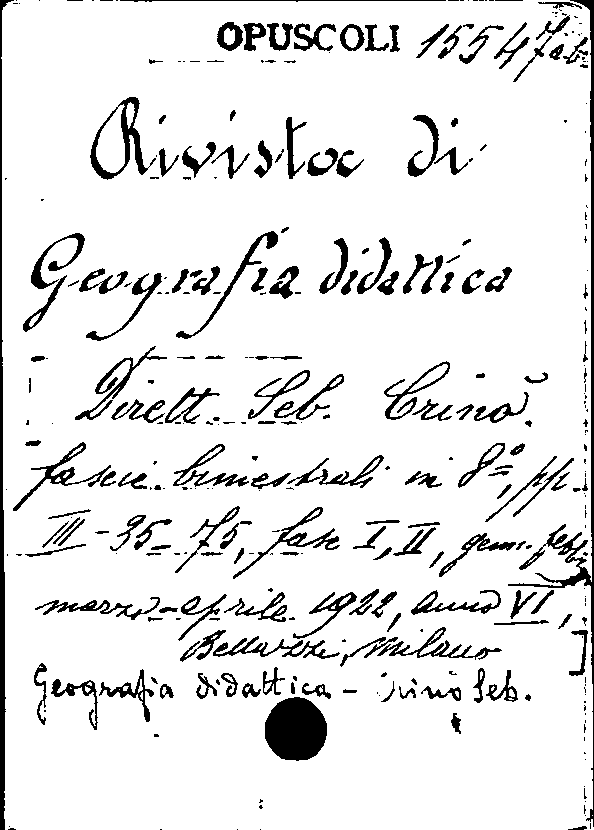 OPUSCOLI 1554 7ab
Rivista di
Geografia didattica
Dirett. Seb. Crinò.
fascic. bimestrali in 8º, pp.
III-35-75, fasc I, II, genn. febb.
marzo-aprile 1922, anno VI,
Bellazzi, Milano ]
Geografia didattica - Crinò Seb.